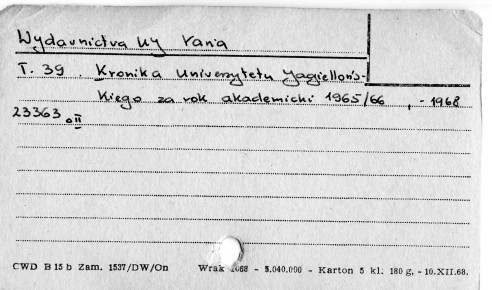 Wydawnictwa UJ Varia
T. 39. Kronika Uniwersytetu Jagiellońs-
kiego za rok akademicki 1965/66, - 1968
23363 II
CWD B 15 b Zam. 1537/DW/On Wrak 1068 - 5.040.000 - Karton 5 kl. 180 g, - 10.XII.68.